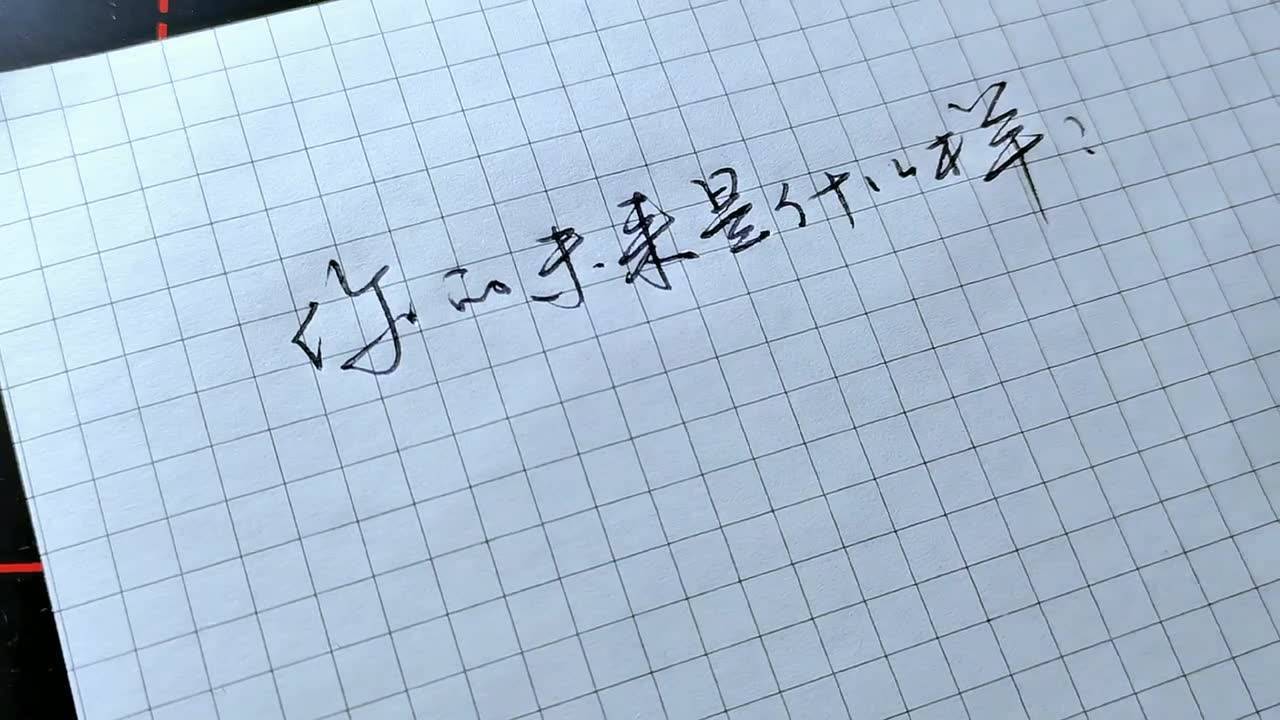 你的未来是什么样？